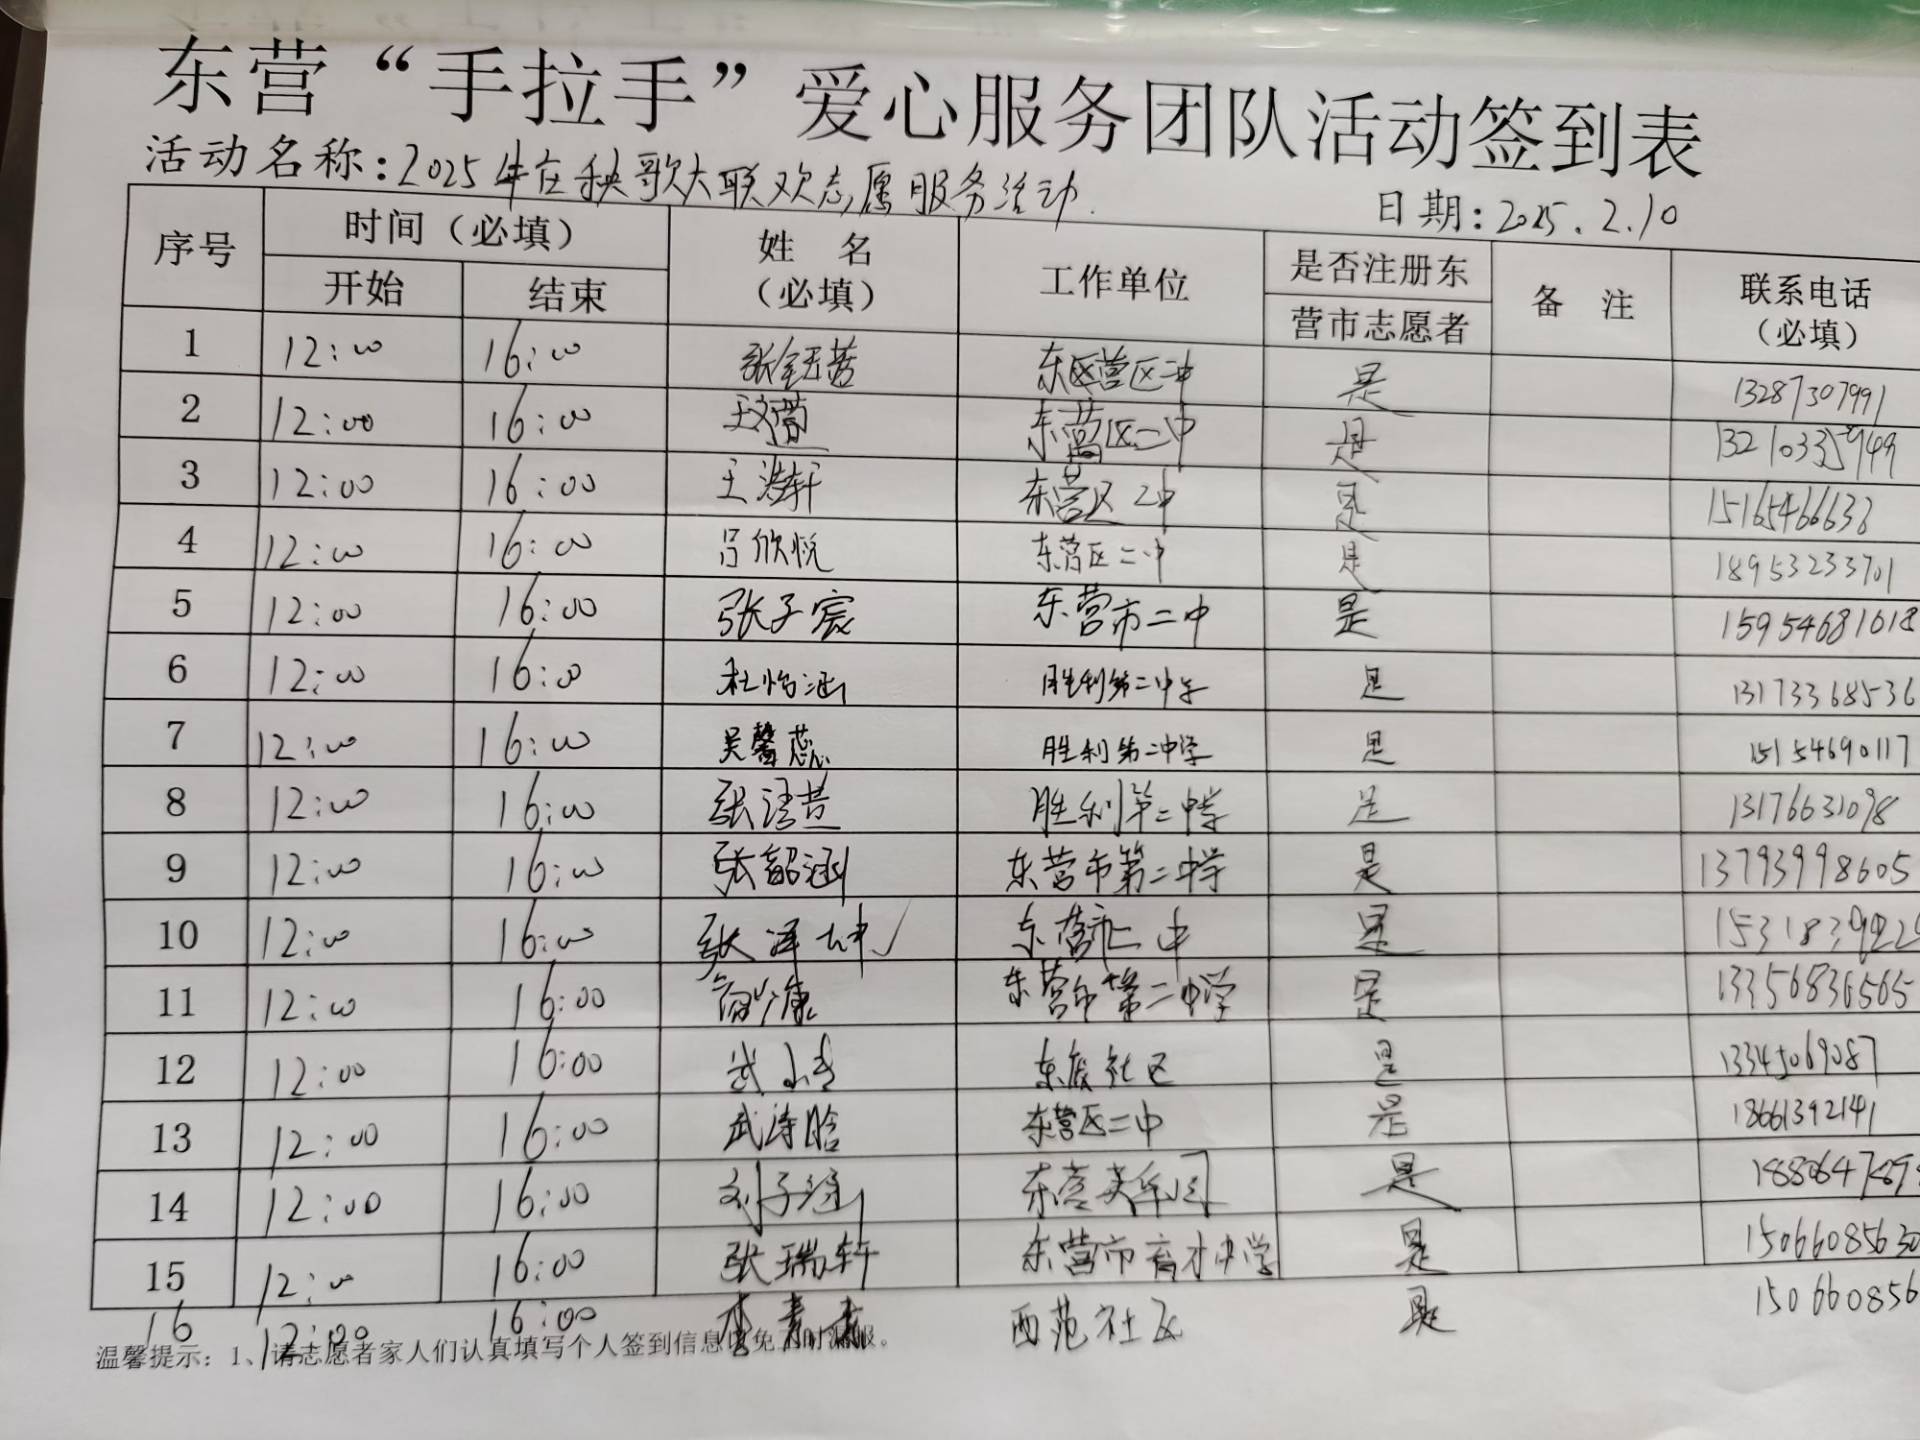 东营“手拉手”爱心服务团队活动签到表
活动名称：2025年在秧歌大联欢志愿服务活动.
日期：2025.2.10
序号 时间（必填） 姓 名（必填） 工作单位 是否注册东营市志愿者 备 注 联系电话（必填）
开始 结束
1 12:00 16:00 张钰茜 东营区二中 是 13287307991
2 12:00 16:00 东营区二中 是
3 12:00 16:00 王浩轩 东营区二中 是 15165466638
4 12:00 16:00 吕欣悦 东营区二中 是 18953233701
5 12:00 16:00 张子宸 东营市二中 是 15954681618
6 12:00 16:00 杜怡涵 胜利第二中学 是 13173368536
7 12:00 16:00 吴馨蕊 胜利第二中学 是 15154690117
8 12:00 16:00 胜利第二中学 是 13176631098
9 12:00 16:00 张韶涵 东营市第二中学 是 13793998605
10 12:00 16:00 张泽坤 东营市二中 是
11 12:00 16:00 东营市第二中学 是 13356836565
12 12:00 16:00 社区 是 13345069087
13 12:00 16:00 武涛晗 东营区二中 是 18661392141
14 12:00 16:00 刘子涵 东营 是
15 12:00 16:00 张瑞轩 东营市育才中学 是 1506608563
16 12:00 16:00 西范社区 是 150660856
温馨提示：1、请志愿者家人们认真填写个人签到信息以免